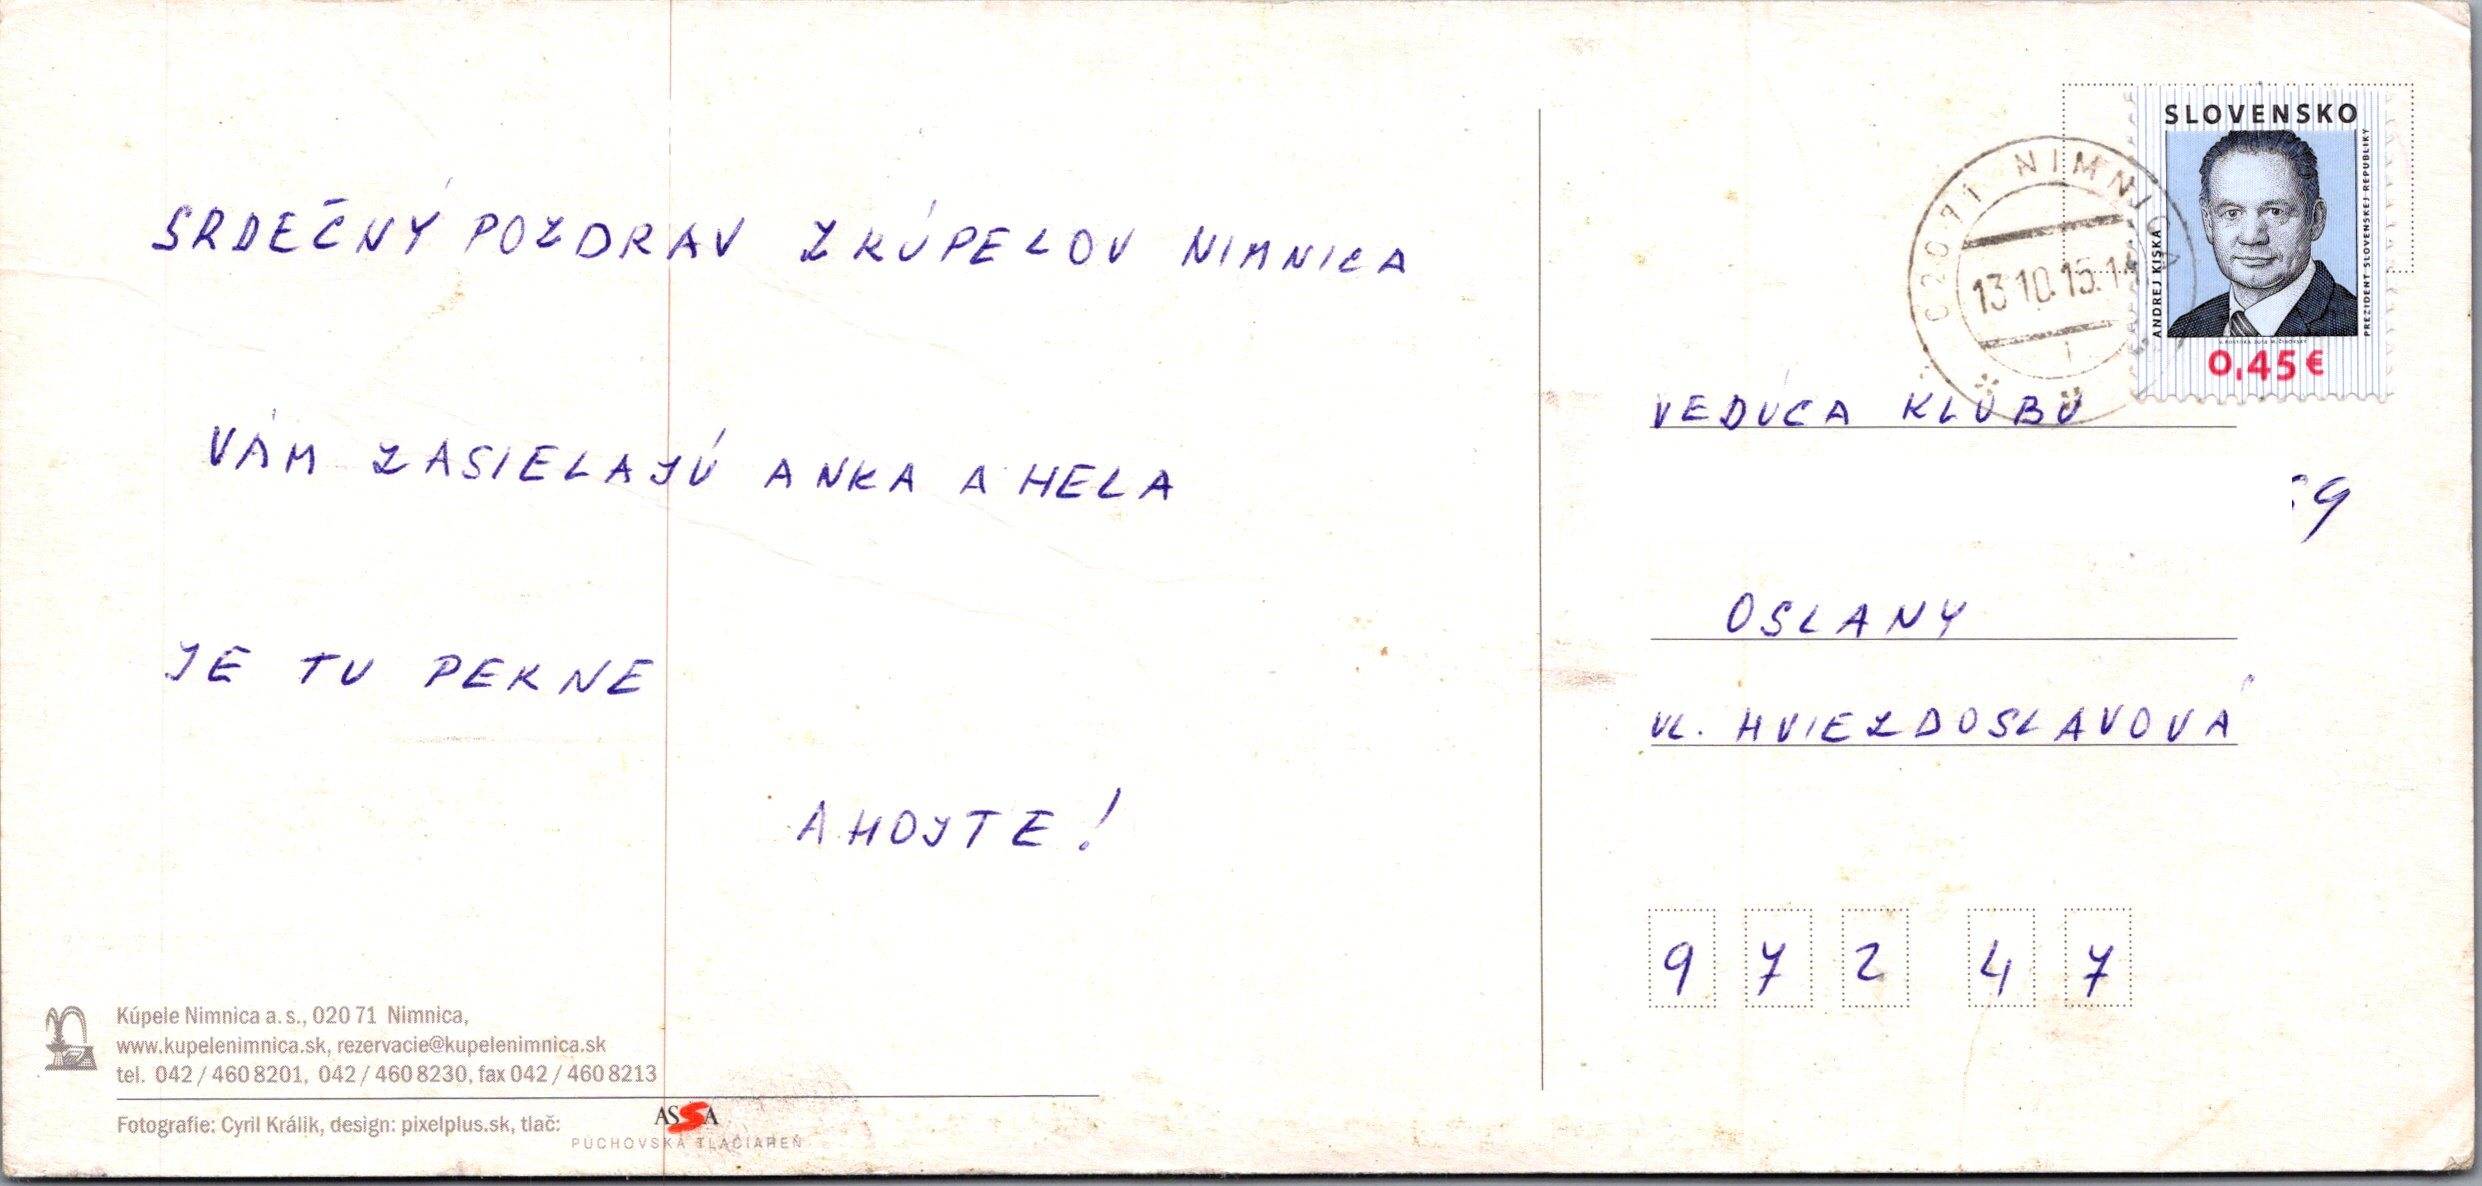 SRDEČNÝ POZDRAV Z KÚPEĽOV NIMNICA
VÁM ZASIELAJÚ ANKA A HELA
JE TU PEKNE
AHOJTE!
Kúpele Nimnica a. s., 020 71 Nimnica,
www.kupelenimnica.sk, rezervacie@kupelenimnica.sk
tel. 042 / 460 8201, 042 / 460 8230, fax 042 / 460 8213
Fotografie: Cyril Králik, design: pixelplus.sk, tlač:
ASSA
PÚCHOVSKÁ TLAČIAREŇ
SLOVENSKO
ANDREJ KISKA
PREZIDENT SLOVENSKEJ REPUBLIKY
0,45€
020 71 NIMNICA
13.10.15.14
VEDÚCA KLUBU
9
OSLANY
UL. HVIEZDOSLAVOVÁ
972 47